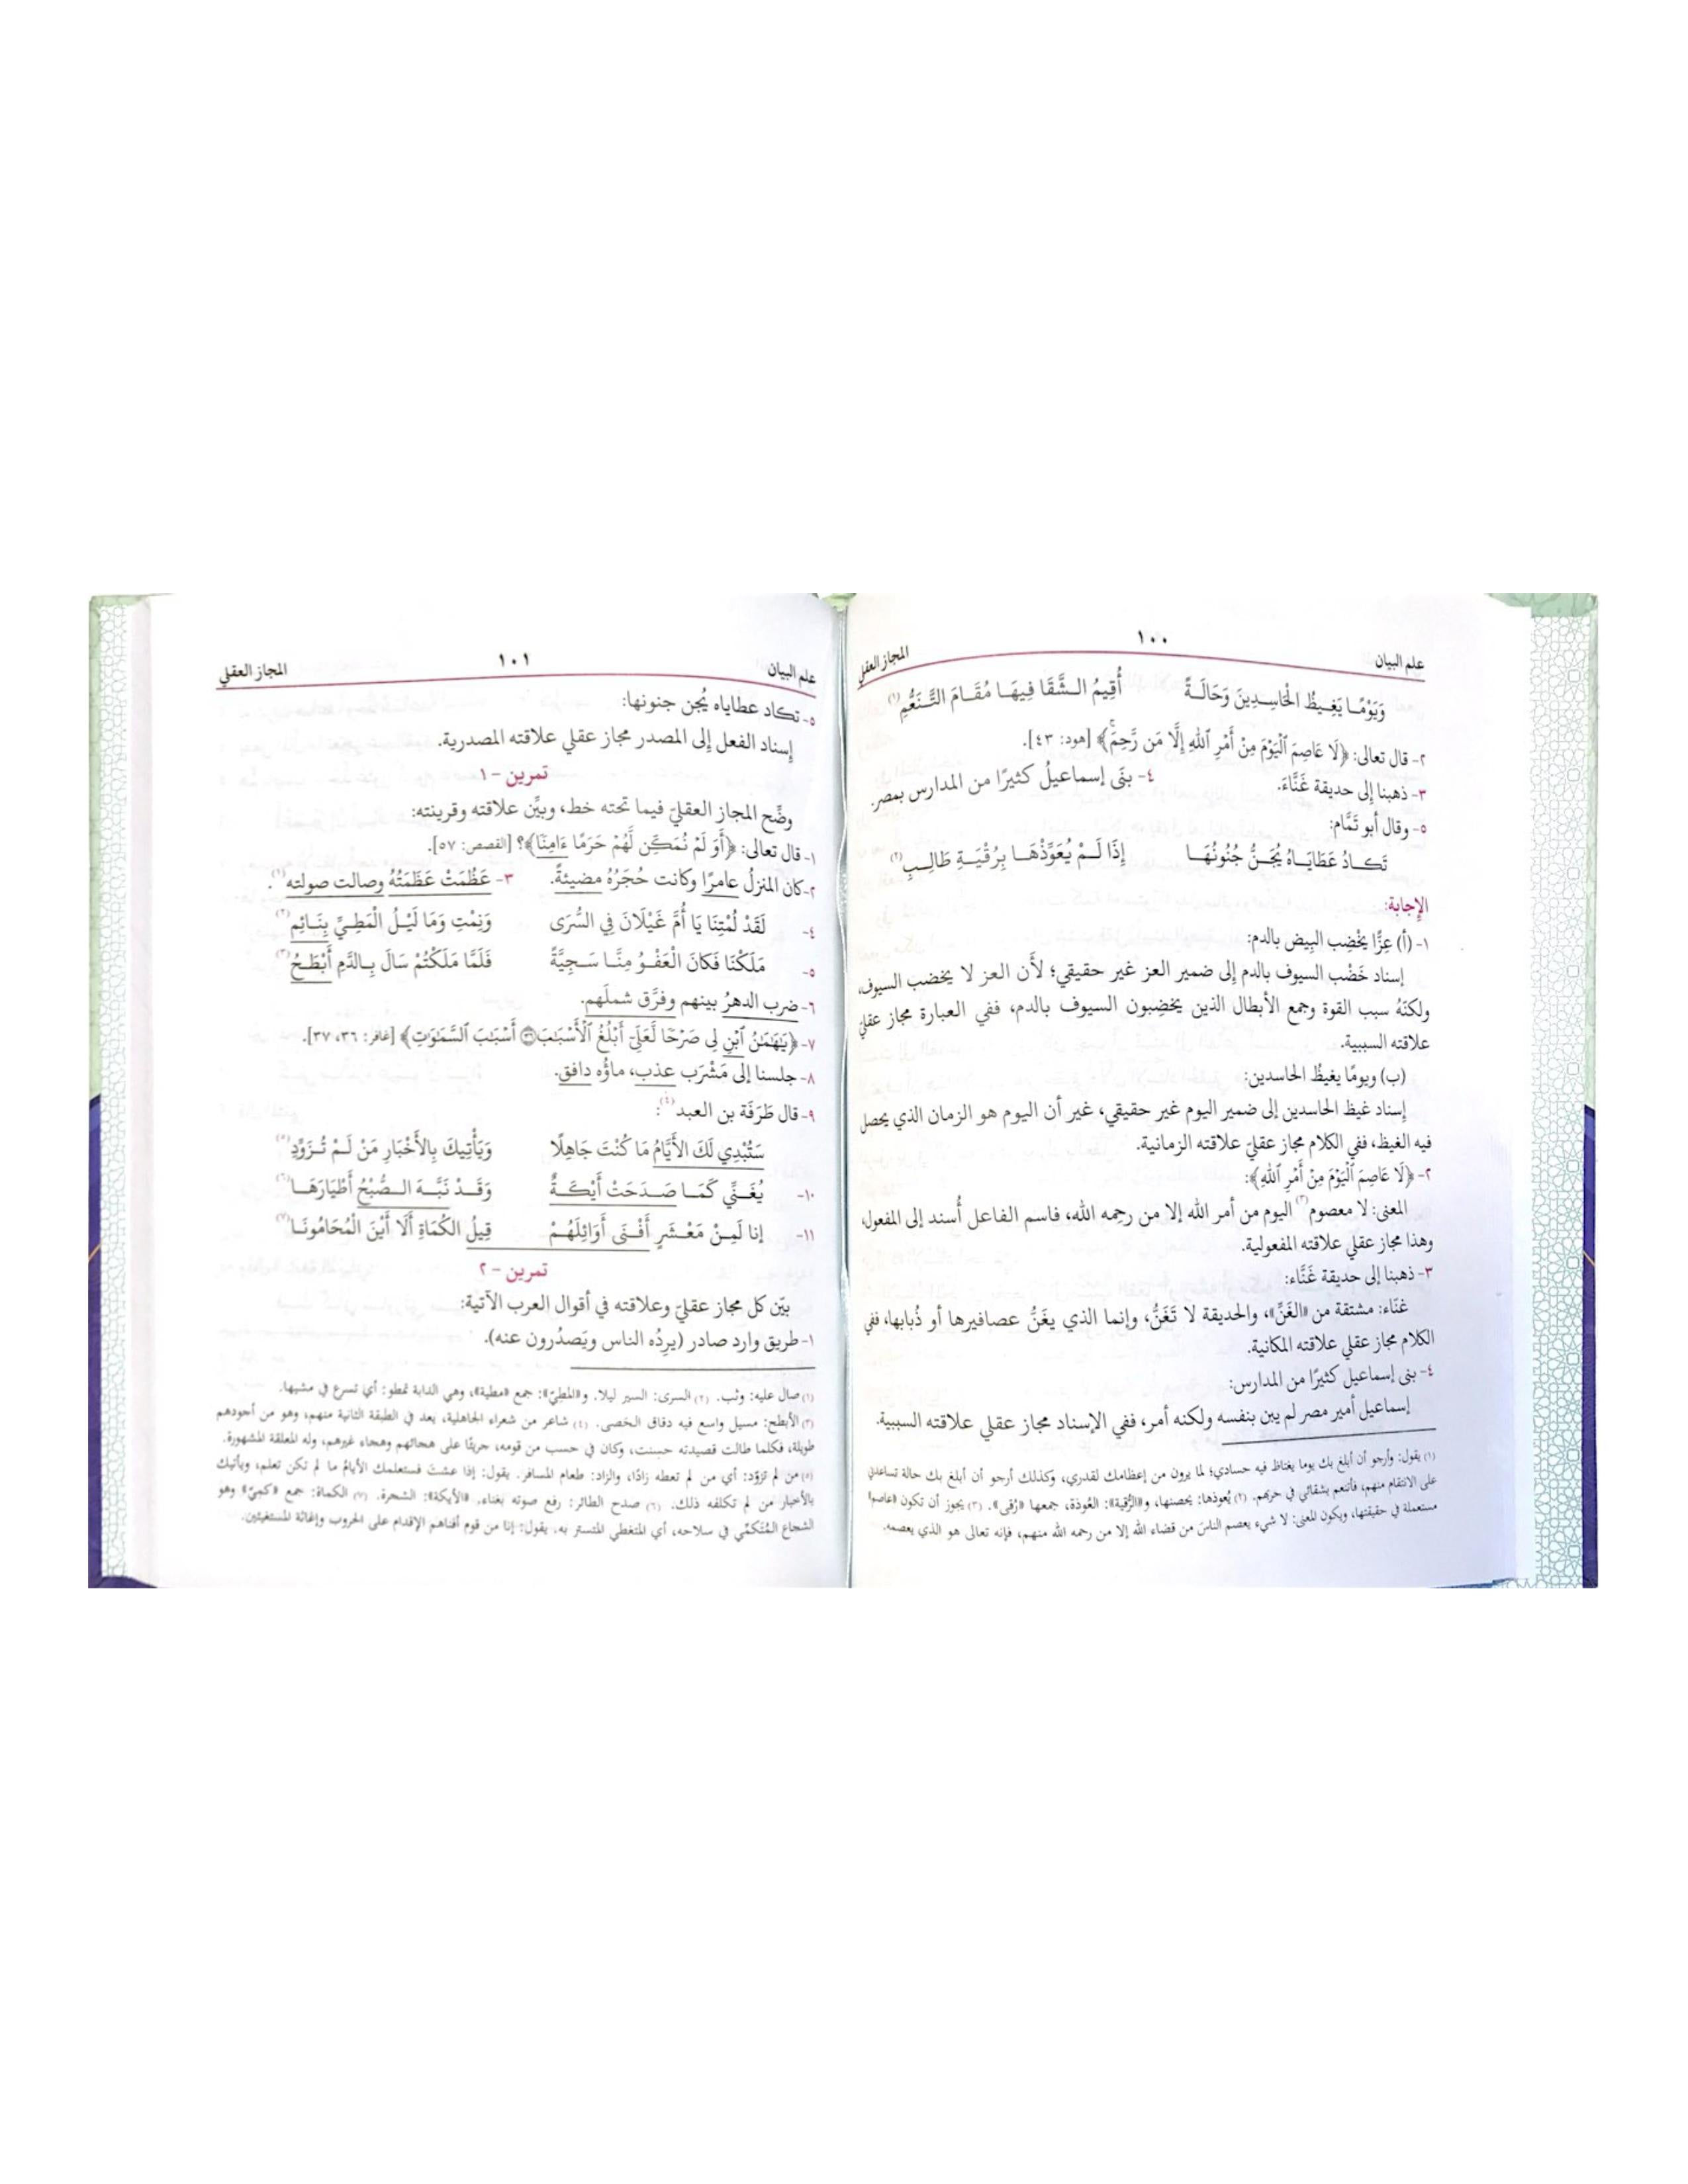 علم البيان ١٠٠ المجاز العقلي
وَيَوْمًا يَغِيظُ الْحَاسِدِينَ وَحَالَةً أُقِيمُ الشَّقَا فِيهَا مُقَامَ التَّنَعُّمِ(١)
٢- قال تعالى: ﴿لَا عَاصِمَ ٱلْيَوْمَ مِنْ أَمْرِ ٱللهِ إِلَّا مَن رَّحِمَۚ﴾ [هود: ٤٣].
٣- ذهبنا إلى حديقة غَنَّاءَ. ٤- بنَى إسماعيلُ كثيرًا من المدارس بمصر.
٥- وقال أبو تَمَّام:
تَكَادُ عَطَايَاهُ يُجَنُّ جُنُونُهَا إِذَا لَمْ يُعَوِّذْهَا بِرُقْيَةِ طَالِبِ(٢)
الإجابة:
١- (أ) عِزًّا يَخْضِب البِيض بالدم:
إسناد خَضْب السيوف بالدم إلى ضمير العز غير حقيقي؛ لأن العز لا يخضب السيوف،
ولكنَهُ سبب القوة وجمع الأبطال الذين يخضِبون السيوف بالدم، ففي العبارة مجاز عقليّ
علاقته السببية.
(ب) ويومًا يغيظُ الحاسدين:
إسناد غيظ الحاسدين إلى ضمير اليوم غير حقيقي، غير أن اليوم هو الزمان الذي يحصل
فيه الغيظ، ففي الكلام مجاز عقليّ علاقته الزمانية.
٢- ﴿لَا عَاصِمَ ٱلْيَوْمَ مِنْ أَمْرِ ٱللهِ﴾:
المعنى: لا معصوم(٣) اليوم من أمر الله إلا من رحمه الله، فاسم الفاعل أُسند إلى المفعول،
وهذا مجاز عقلي علاقته المفعولية.
٣- ذهبنا إلى حديقة غَنَّاء:
غنّاء: مشتقة من «الغَنِّ»، والحديقة لا تَغَنُّ، وإنما الذي يغَنُّ عصافيرها أو ذُبابها، ففي
الكلام مجاز عقلي علاقته المكانية.
٤- بنى إسماعيل كثيرًا من المدارس:
إسماعيل أمير مصر لم يبن بنفسه ولكنه أمر، ففي الإسناد مجاز عقلي علاقته السببية.
(١) يقول: وأرجو أن أبلغ بك يوما يغتاظ فيه حسادي؛ لما يرون من إعظامك لقدري، وكذلك أرجو أن أبلغ بك حالة تساعدني
على الانتقام منهم، فأتنعم بشقائي في حربهم. (٢) يُعوذها: يحصنها، و«الرُّقية»: العُوذة، جمعها «رُقى». (٣) يجوز أن تكون «عاصم»
مستعملة في حقيقتها، ويكون المعنى: لا شيء يعصم الناسَ من قضاء الله إلا من رحمه الله منهم، فإنه تعالى هو الذي يعصمه.
علم البيان ١٠١ المجاز العقلي
٥- تكاد عطاياه يُجن جنونها:
إسناد الفعل إلى المصدر مجاز عقلي علاقته المصدرية.
تمرين - ١
وضِّح المجاز العقليّ فيما تحته خط، وبيِّن علاقته وقرينته:
١- قال تعالى: ﴿أَوَ لَمْ نُمَكِّن لَّهُمْ حَرَمًا ءَامِنًا﴾؟ [القصص: ٥٧].
٢- كان المنزلُ عامرًا وكانت حُجَرُهُ مضيئةً. ٣- عَظُمَتْ عَظَمَتُهُ وصالت صولته(١).
٤- لَقَدْ لُمْتِنَا يَا أُمَّ غَيْلَانَ فِي السُّرَى وَنِمْتِ وَمَا لَيْلُ الْمَطِيِّ بِنَائِمِ(٢)
٥- مَلَكْنَا فَكَانَ الْعَفْوُ مِنَّا سَجِيَّةً فَلَمَّا مَلَكْتُمْ سَالَ بِالدَّمِ أَبْطَحُ(٣)
٦- ضرب الدهرُ بينهم وفرَّق شملَهم.
٧- ﴿يَٰهَٰمَٰنُ ٱبْنِ لِى صَرْحًا لَّعَلِّىٓ أَبْلُغُ ٱلْأَسْبَٰبَ۝٣٦ أَسْبَٰبَ ٱلسَّمَٰوَٰتِ﴾ [غافر: ٣٦، ٣٧].
٨- جلسنا إلى مَشْرَب عذب، ماؤه دافق.
٩- قال طَرَفَة بن العبد(٤):
سَتُبْدِي لَكَ الأَيَّامُ مَا كُنْتَ جَاهِلًا وَيَأْتِيكَ بِالأَخْبَارِ مَنْ لَمْ تُزَوِّدِ(٥)
١٠- يُغَنِّي كَمَا صَدَحَتْ أَيْكَةٌ وَقَدْ نَبَّهَ الصُّبْحُ أَطْيَارَهَا(٦)
١١- إنا لَمِنْ مَعْشَرٍ أَفْنَى أَوَائِلَهُمْ قِيلُ الكُمَاةِ أَلَا أَيْنَ الْمُحَامُونَا(٧)
تمرين - ٢
بيّن كل مجاز عقليّ وعلاقته في أقوال العرب الآتية:
١- طريق وارد صادر (يرِدُه الناس ويَصدُرون عنه).
(١) صال عليه: وثب. (٢) السرى: السير ليلا. و«المَطِيّ»: جمع «مطية»، وهي الدابة تمطو: أي تسرع في مشيها.
(٣) الأبطح: مسيل واسع فيه دقاق الحصى. (٤) شاعر من شعراء الجاهلية، يعد في الطبقة الثانية منهم، وهو من أجودهم
طويلة، فكلما طالت قصيدته حسنت، وكان في حسب من قومه، جريئا على هجائهم وهجاء غيرهم، وله المعلقة المشهورة.
(٥) من لم تزوّد: أي من لم تعطه زادًا، والزاد: طعام المسافر. يقول: إذا عشت فستعلمك الأيامُ ما لم تكن تعلم، ويأتيك
بالأخبار من لم تكلفه ذلك. (٦) صدح الطائر: رفع صوته بغناء. «الأيكة»: الشجرة. (٧) الكماة: جمع «كمِيّ» وهو
الشجاع المُتكمِّي في سلاحه، أي المتغطي المتستر به. يقول: إنا من قوم أفناهم الإقدام على الحروب وإغاثة المستغيثين.